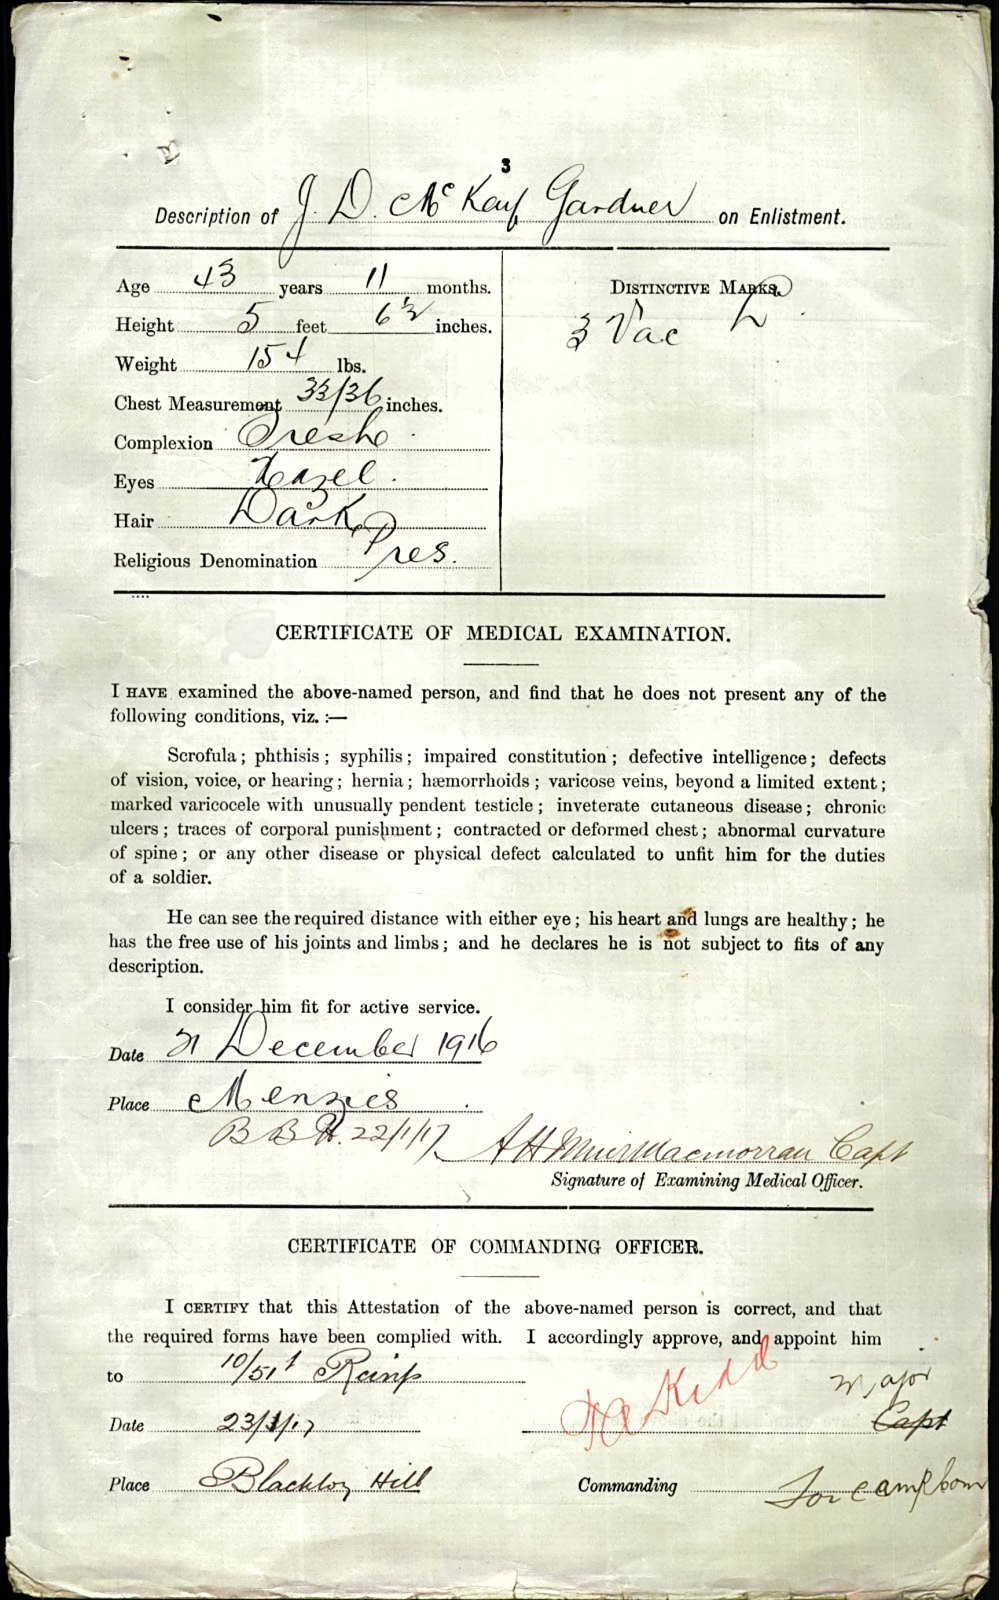 3
Description of J. D. McKay Gardner on Enlistment.
Age 43 years 11 months.
Height 5 feet 6 1/2 inches.
Weight 154 lbs.
Chest Measurement 33/36 inches.
Complexion Fresh
Eyes Hazel.
Hair Dark
Religious Denomination Pres.
Distinctive Marks.
3 Vac L
CERTIFICATE OF MEDICAL EXAMINATION.
I HAVE examined the above-named person, and find that he does not present any of the
following conditions, viz. :—
Scrofula; phthisis; syphilis; impaired constitution; defective intelligence; defects
of vision, voice, or hearing; hernia; hæmorrhoids; varicose veins, beyond a limited extent;
marked varicocele with unusually pendent testicle; inveterate cutaneous disease; chronic
ulcers; traces of corporal punishment; contracted or deformed chest; abnormal curvature
of spine; or any other disease or physical defect calculated to unfit him for the duties
of a soldier.
He can see the required distance with either eye; his heart and lungs are healthy; he
has the free use of his joints and limbs; and he declares he is not subject to fits of any
description.
I consider him fit for active service.
Date 21 December 1916
Place Menzies
B B H. 22/1/17
A H Muir Macmorran Capt
Signature of Examining Medical Officer.
CERTIFICATE OF COMMANDING OFFICER.
I CERTIFY that this Attestation of the above-named person is correct, and that
the required forms have been complied with. I accordingly approve, and appoint him
to 10/51st Reinfs
Major
Date 23/1/17 Kidd Capt
Place Blackboy Hill Commanding